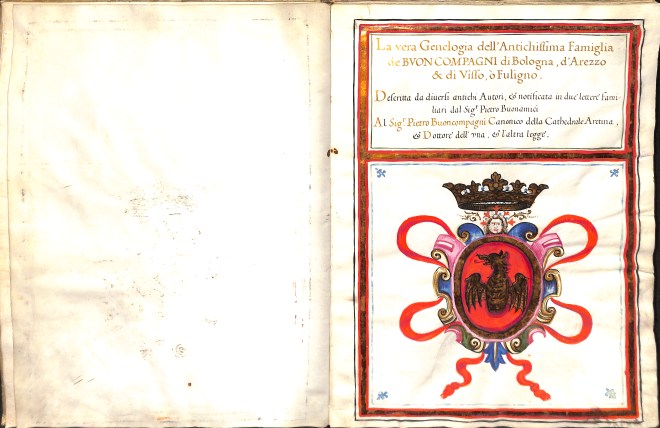 La vera Genelogia dell'Antichissima Famiglia
de BVON COMPAGNI di Bologna, d'Arezzo
& di Visso, ò Fuligno.
Descritta da diuersi antichi Autori, & notificata in due lettere fami-
liari dal Sigʳ Pietro Buonamici
Al Sigʳ Pietro Buoncompagni Canonico della Cathedrale Aretina,
& Dottore dell'vna, & l'altra legge.